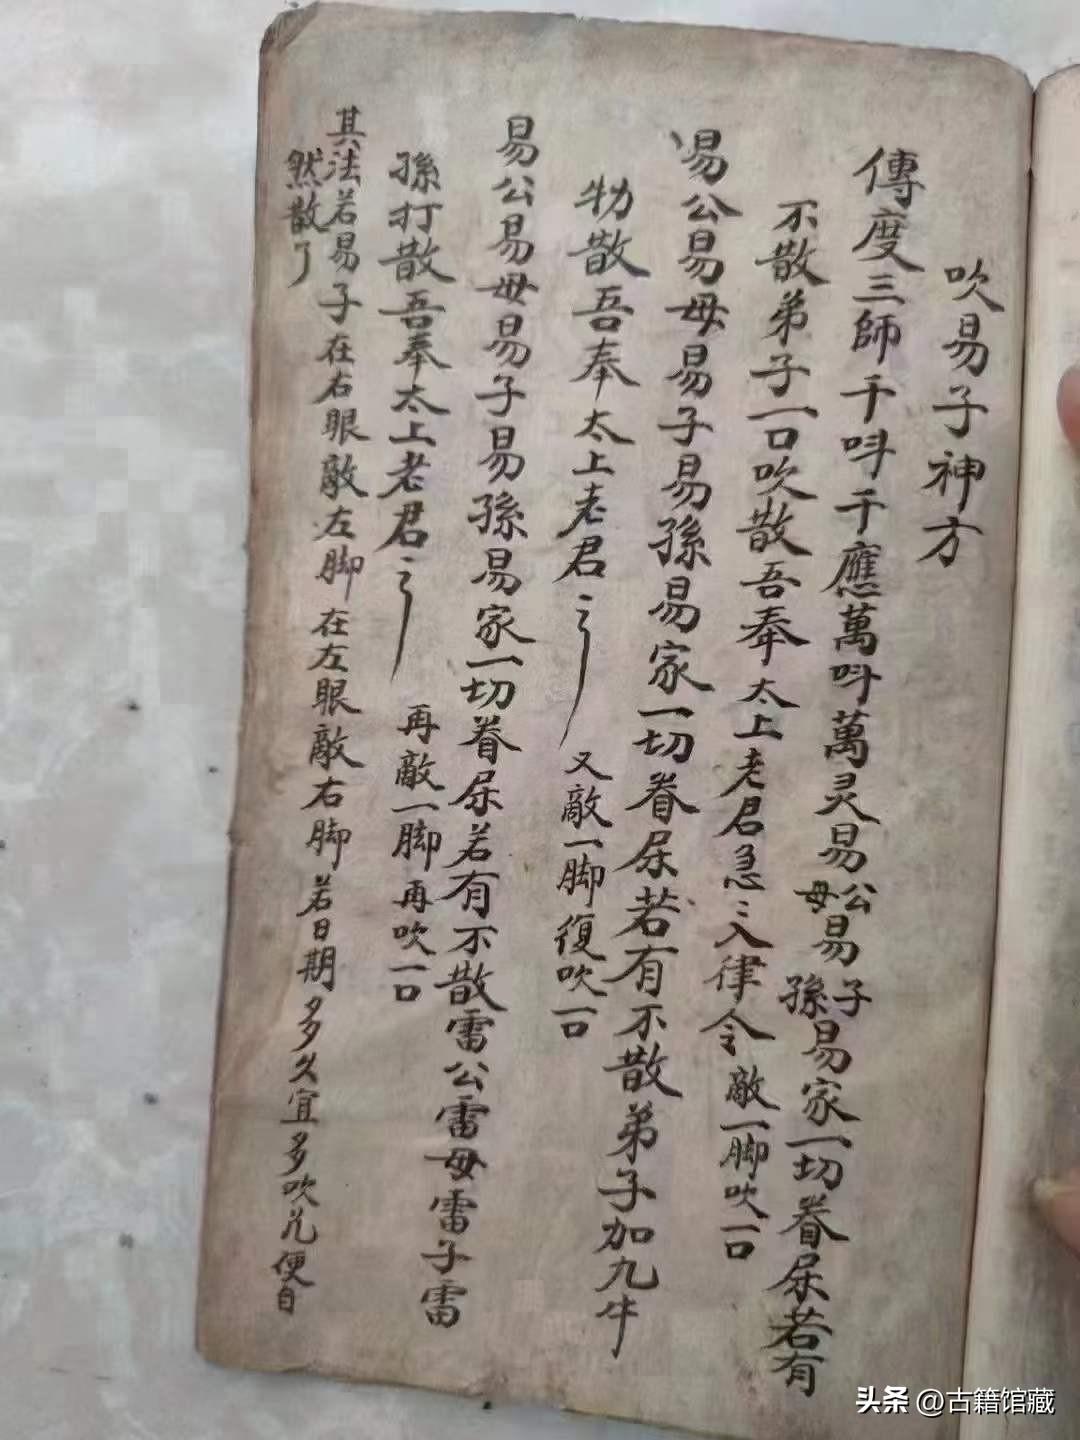 吹易子神方
傳度三師千呌千應萬呌萬灵易公母易子孫易家一切眷屎若有
不散弟子一口吹散吾奉太上老君急〻入律令敵一脚吹一口
易公易母易子易孫易家一切眷屎若有不散弟子加九牛
散吾奉太上老君〻又敵一脚復吹一口
易公易母易子易孫易家一切眷屎若有不散雷公雷母雷子雷
孫打散吾奉太上老君〻再敵一脚再吹一口
其法若易子在右眼敵左脚在左眼敵右脚若日期多久宜多吹几便自
然散了
头条 @古籍馆藏